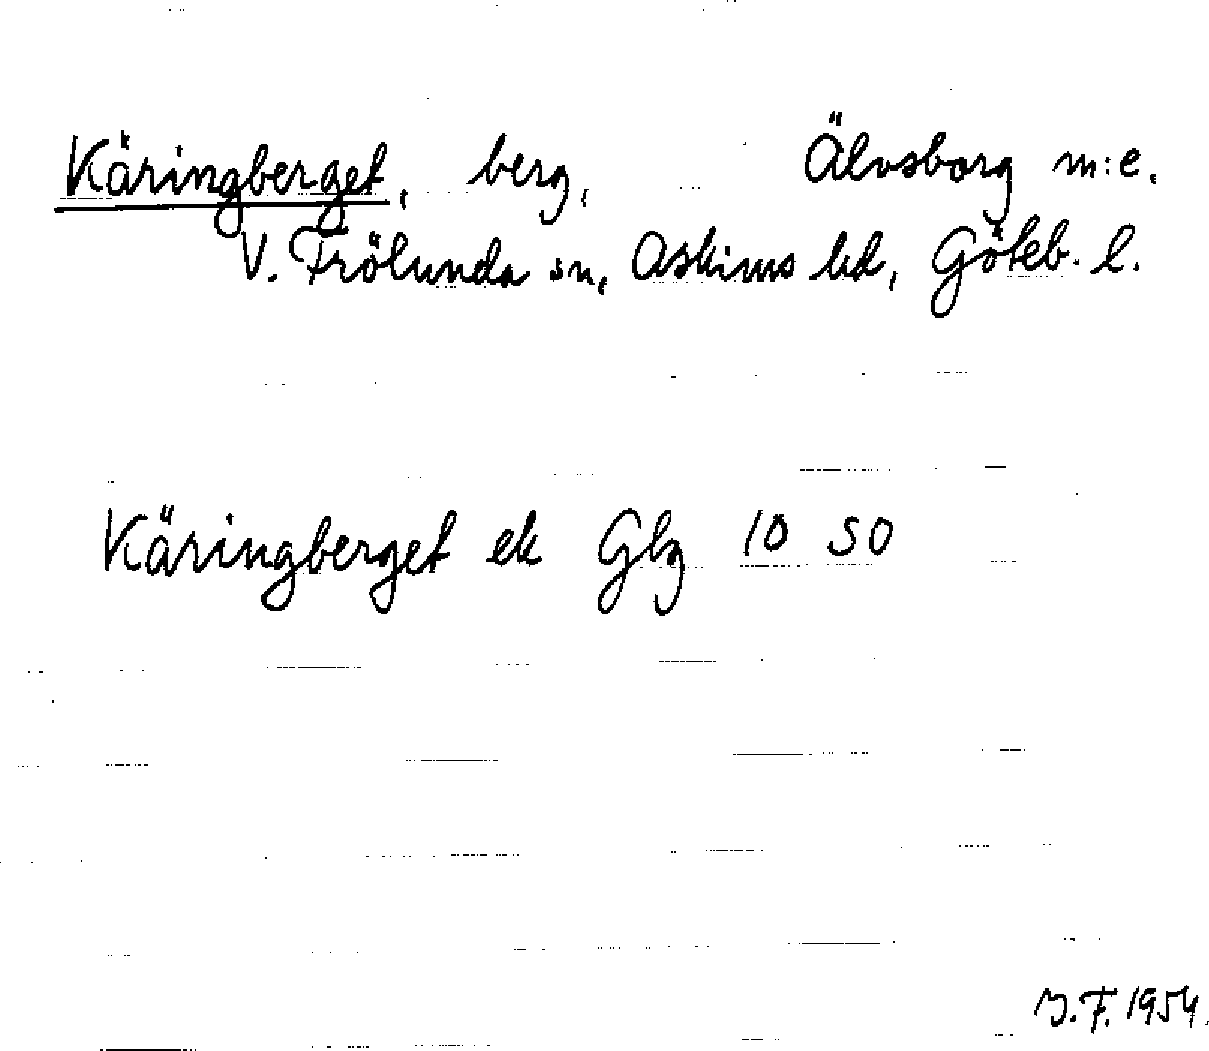 Käringberget, berg, Älvsborg m:e.
V. Frölunda sn, Askims hd, Göteb. l.
Käringberget ek Gbg 10 SO
F. 1954.